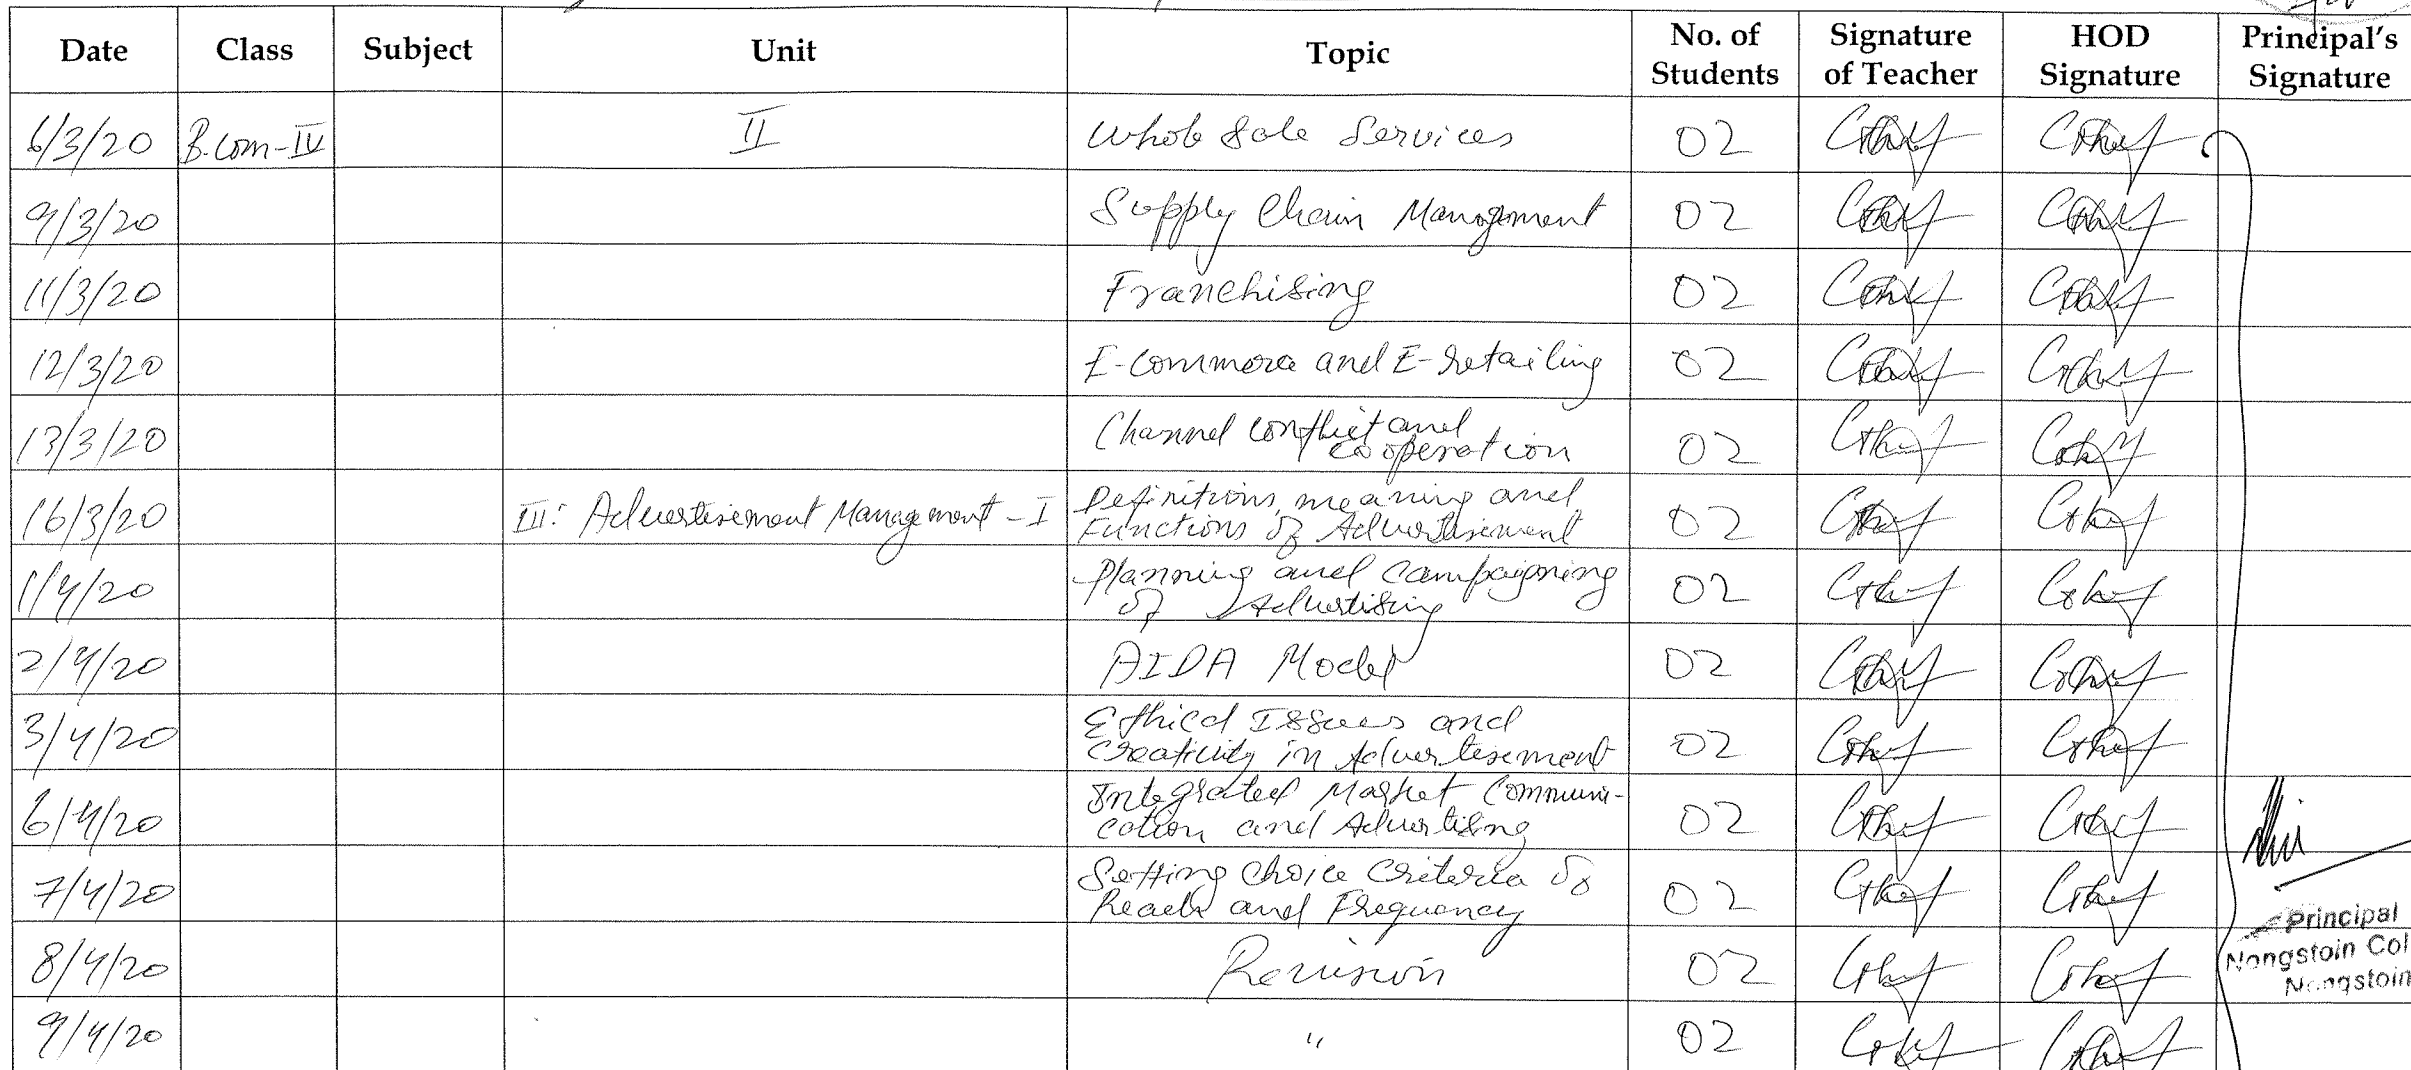 Date Class Subject Unit Topic No. of Students Signature of Teacher HOD Signature Principal's Signature
6/3/20 B.Com-IV II Whole Sale Services 02
9/3/20 Supply Chain Management 02
11/3/20 Franchising 02
12/3/20 E-Commerce and E-retailing 02
13/3/20 Channel conflict and cooperation 02
16/3/20 III: Advertisement Management - I Definitions, meaning and Functions of Advertisement 02
1/4/20 Planning and Campaigning of Advertising 02
2/4/20 AIDA Model 02
3/4/20 Ethical Issues and Creativity in Advertisement 02
6/4/20 Integrated Market Communi-
cation and Advertising 02
7/4/20 Setting Choice Criteria of Reach and Frequency 02
8/4/20 Revision 02
9/4/20 " 02
Principal
Nongstoin Col
Nongstoin